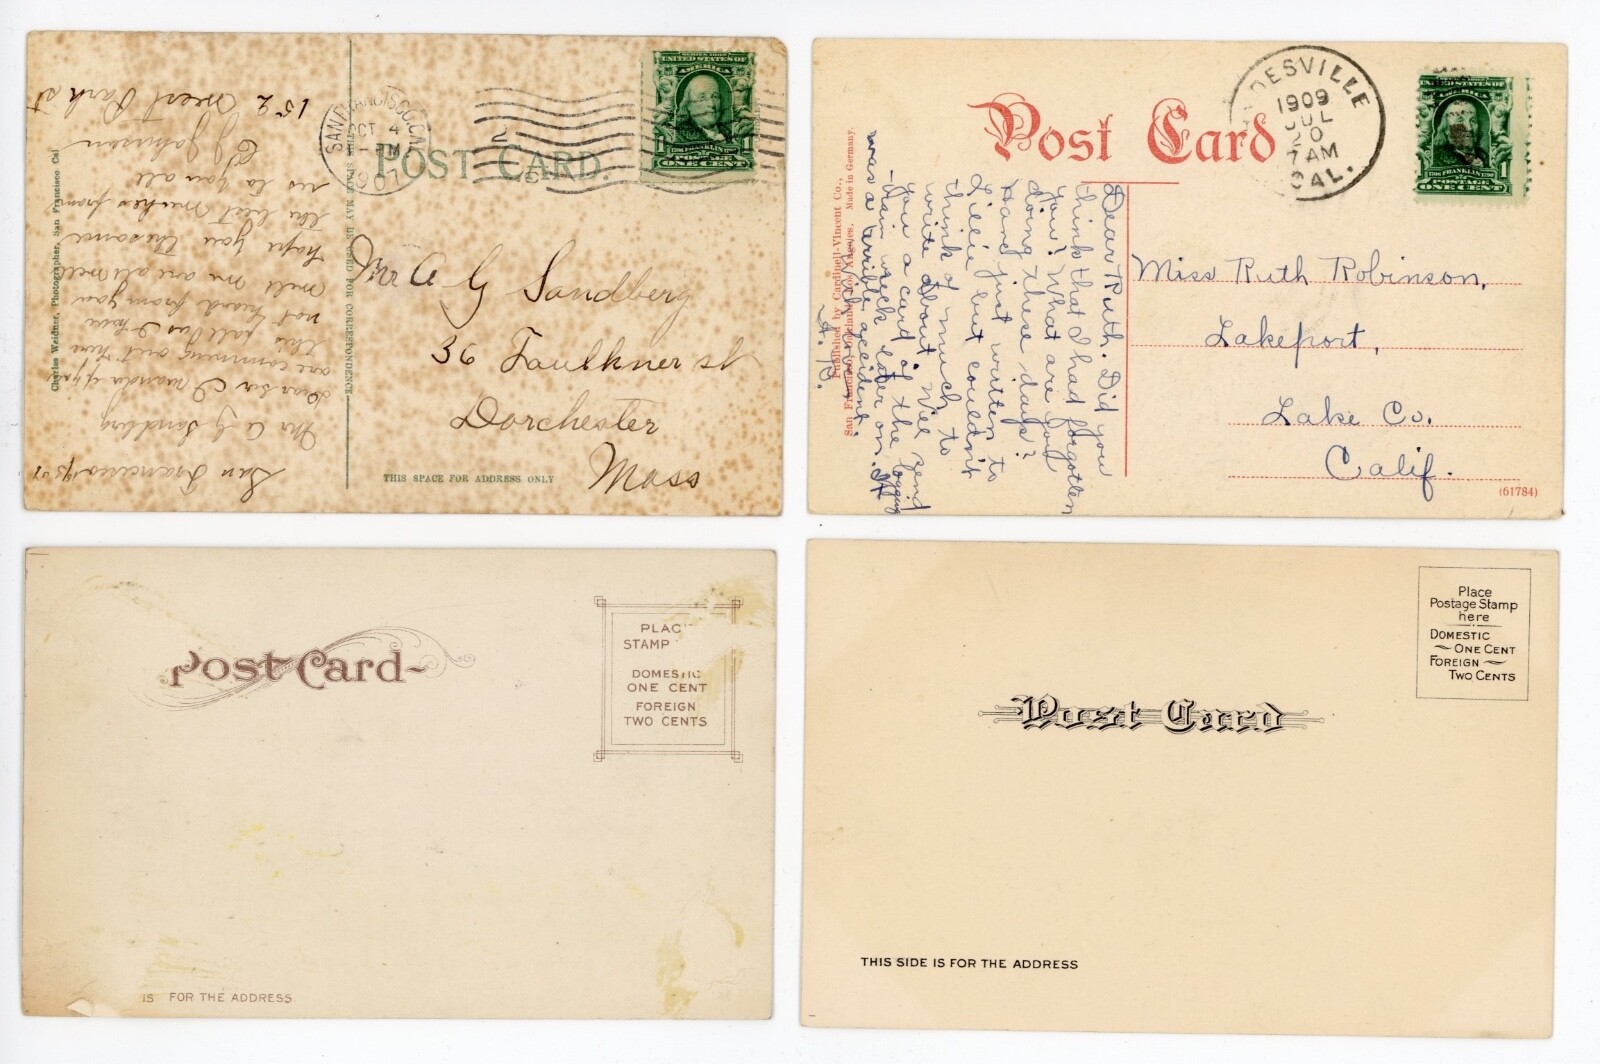 POST CARD.
SAN FRANCISCO, CAL.
OCT 4
PM
1907
SERIES 1902
UNITED STATES OF
AMERICA
1 1706 FRANKLIN 1790 1
POSTAGE
ONE CENT
Charles Weidner, Photographer, San Francisco Cal
THIS SPACE MAY BE USED FOR CORRESPONDENCE
San Francisco
Mr A G Sandberg
Dear Sir I
are comming out here
this fall as I have
not heard from you
well we are all well
hope you the same
the best wishes from
us to you all
C J Johnson
152 West Park st
Mr A G Sandberg
36 Faulkner st
Dorchester
Mass
THIS SPACE FOR ADDRESS ONLY
Post Card
DESVILLE
1909
JUL
7 AM
CAL.
UNITED STATES OF
AMERICA
1706 FRANKLIN 1790 1
POSTAGE
ONE CENT
Published by Cardinell-Vincent Co.,
San Francisco, Oakland, Los Angeles. Made in Germany.
Dear Ruth. Did you
think that I had forgotten
you? What are you
doing these days?
Have just written to
Lillie but couldn't
think of much to
write about. Will send
you a card of the logging
train wreck later on. It
was a terrible accident.
With love,
Miss Ruth Robinson,
Lakeport,
Lake Co.
Calif.
(61784)
Post Card
PLAC
STAMP
DOMESTIC
ONE CENT
FOREIGN
TWO CENTS
IS FOR THE ADDRESS.
Post Card
Place
Postage Stamp
here
DOMESTIC
ONE CENT
FOREIGN
TWO CENTS
THIS SIDE IS FOR THE ADDRESS